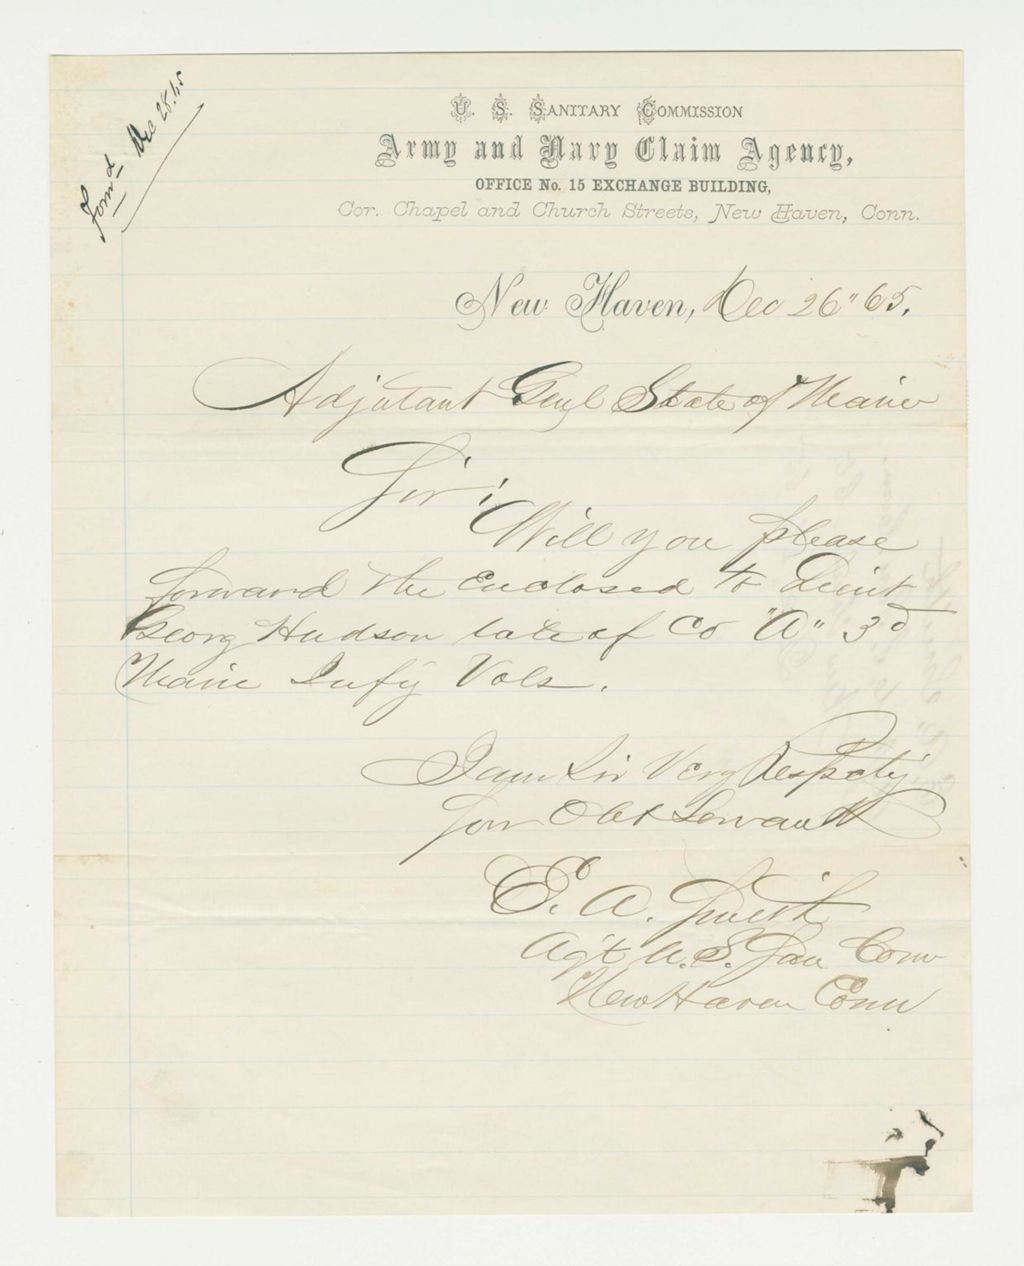 Forwd Dec 28.65
U. S. SANITARY COMMISSION
Army and Navy Claim Agency,
OFFICE No. 15 EXCHANGE BUILDING,
Cor. Chapel and Church Streets, New Haven, Conn.
New Haven, Dec 26" 65.
Adjutant Genl State of Maine
Sir;
Will you please
forward the Enclosed to Lieut
Georg Hudson late of Co "A" 3d
Maine Infy Vols.
I am Sir Very Respctly
Your Obt Servant
E. A. Smith
Agt U.S. San Com
New Haven Conn